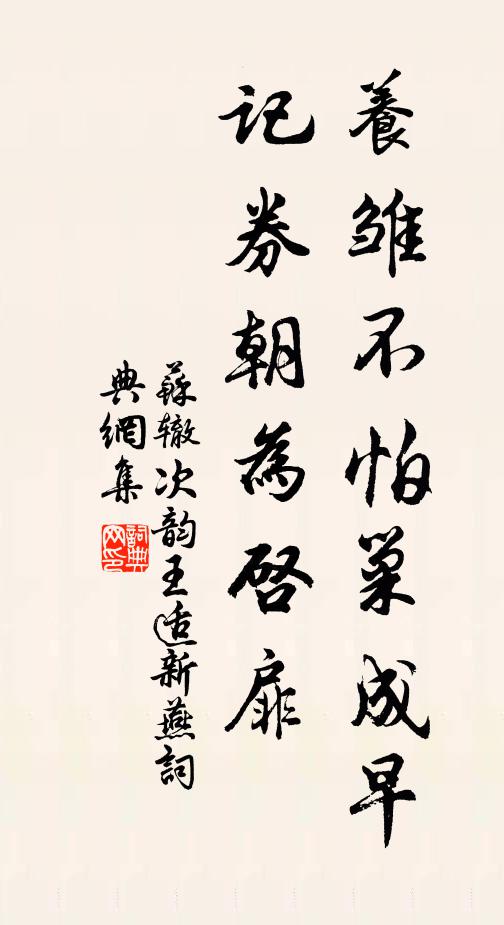 養雛不怕巢成早
記券朝為啓扉
蘇轍次韵王适新燕詞
典網集
詞典
网印